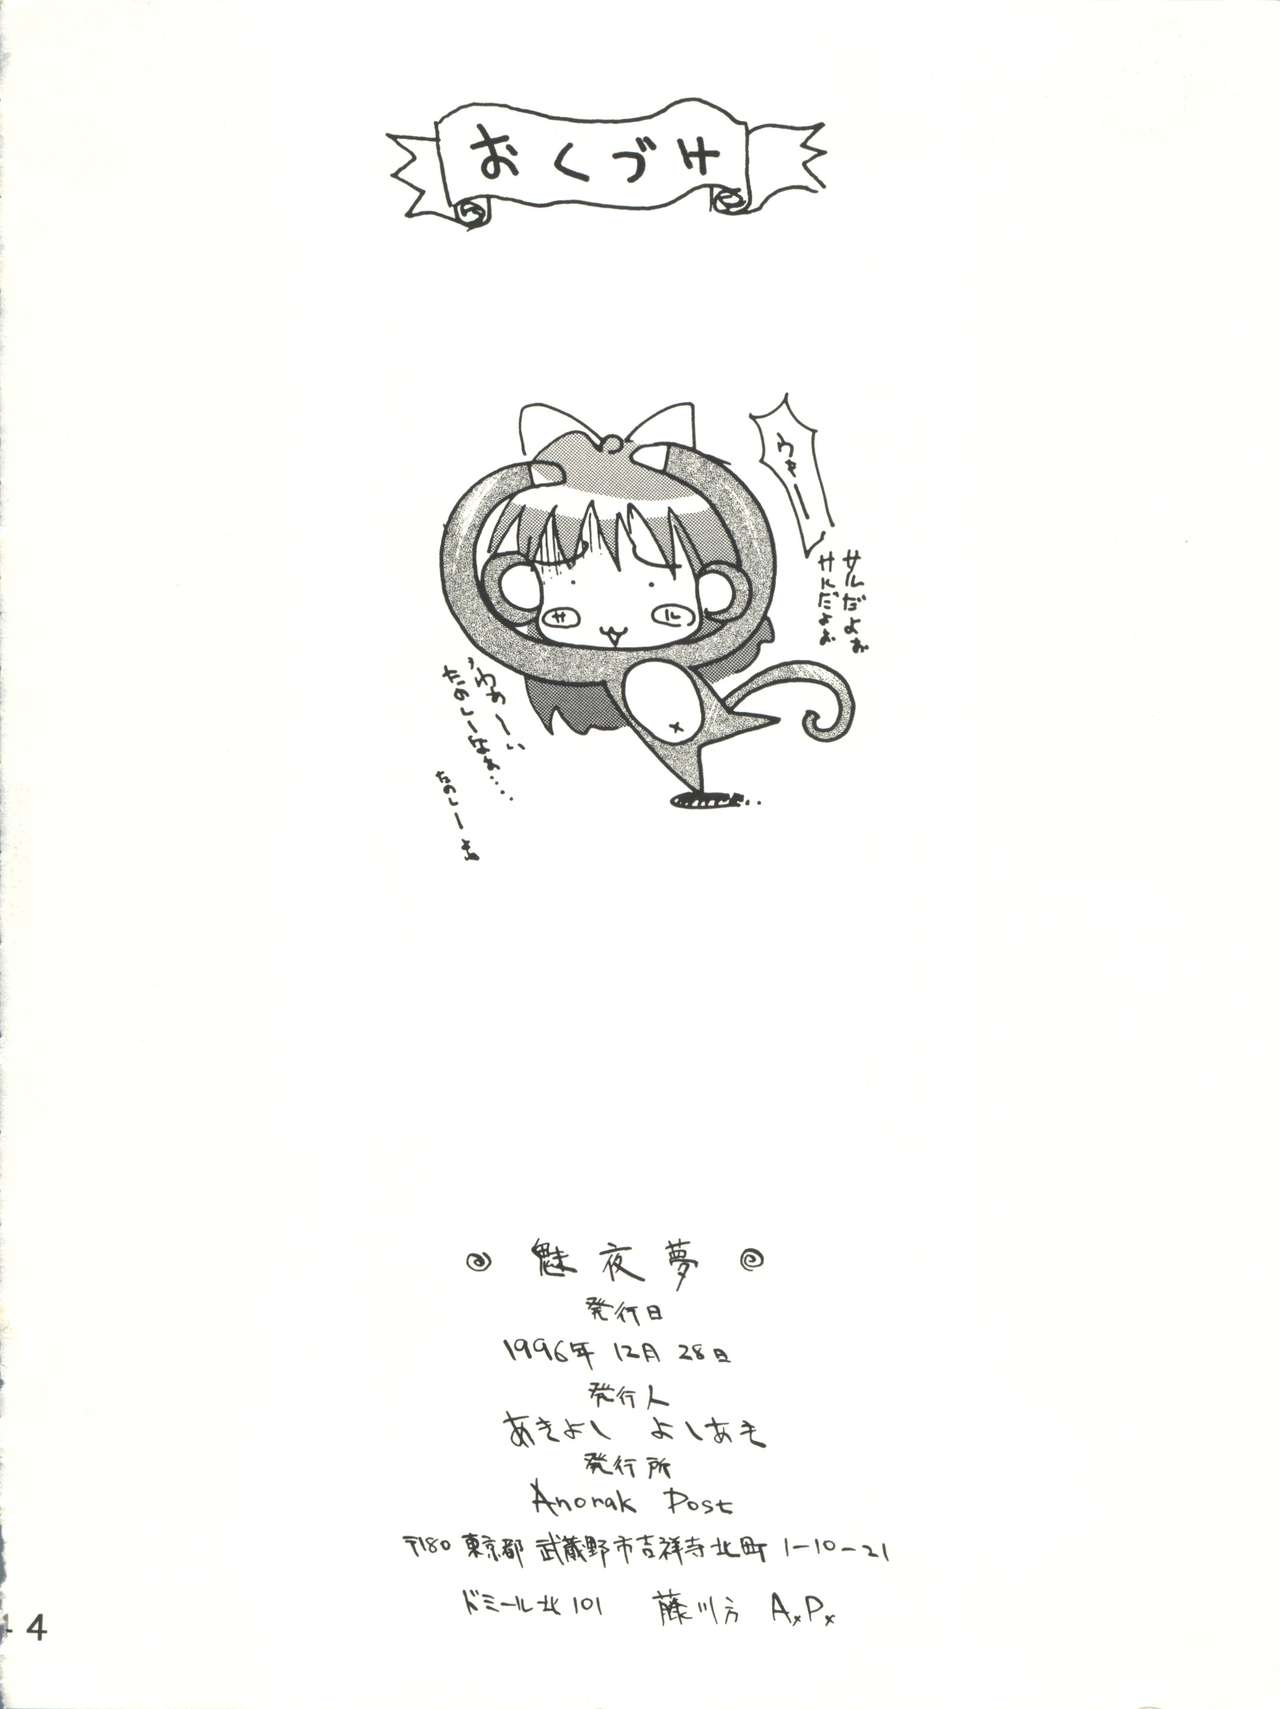 おくづけ
ウキーー
サルだよぉ
サルだよぉ
サ
ル
うわぁーい
たのしーなぁ....
たのしーよぉ
魅夜夢
発行日
1996年 12月 28日
発行人
あきよし よしあき
発行所
Anorak Post
〒180 東京都 武蔵野市吉祥寺北町 1-10-21
ドミール北101 藤川方 A.P.
4